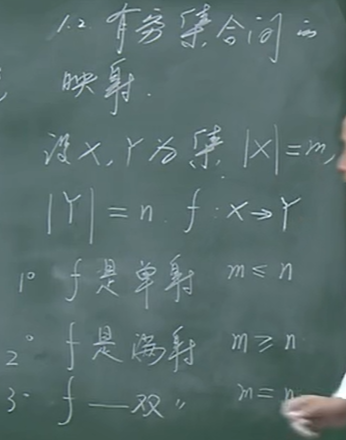 1.2 有穷集合间的
映射.
设X,Y为集 |X|=m,
|Y|=n. f:X→Y
1° f是单射 m≤n
2° f是满射 m≥n
3° f—双〃 m=n